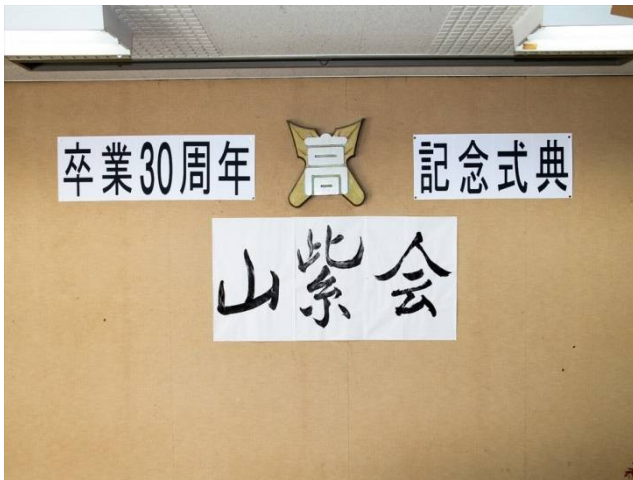 卒業30周年
高
記念式典
山紫会